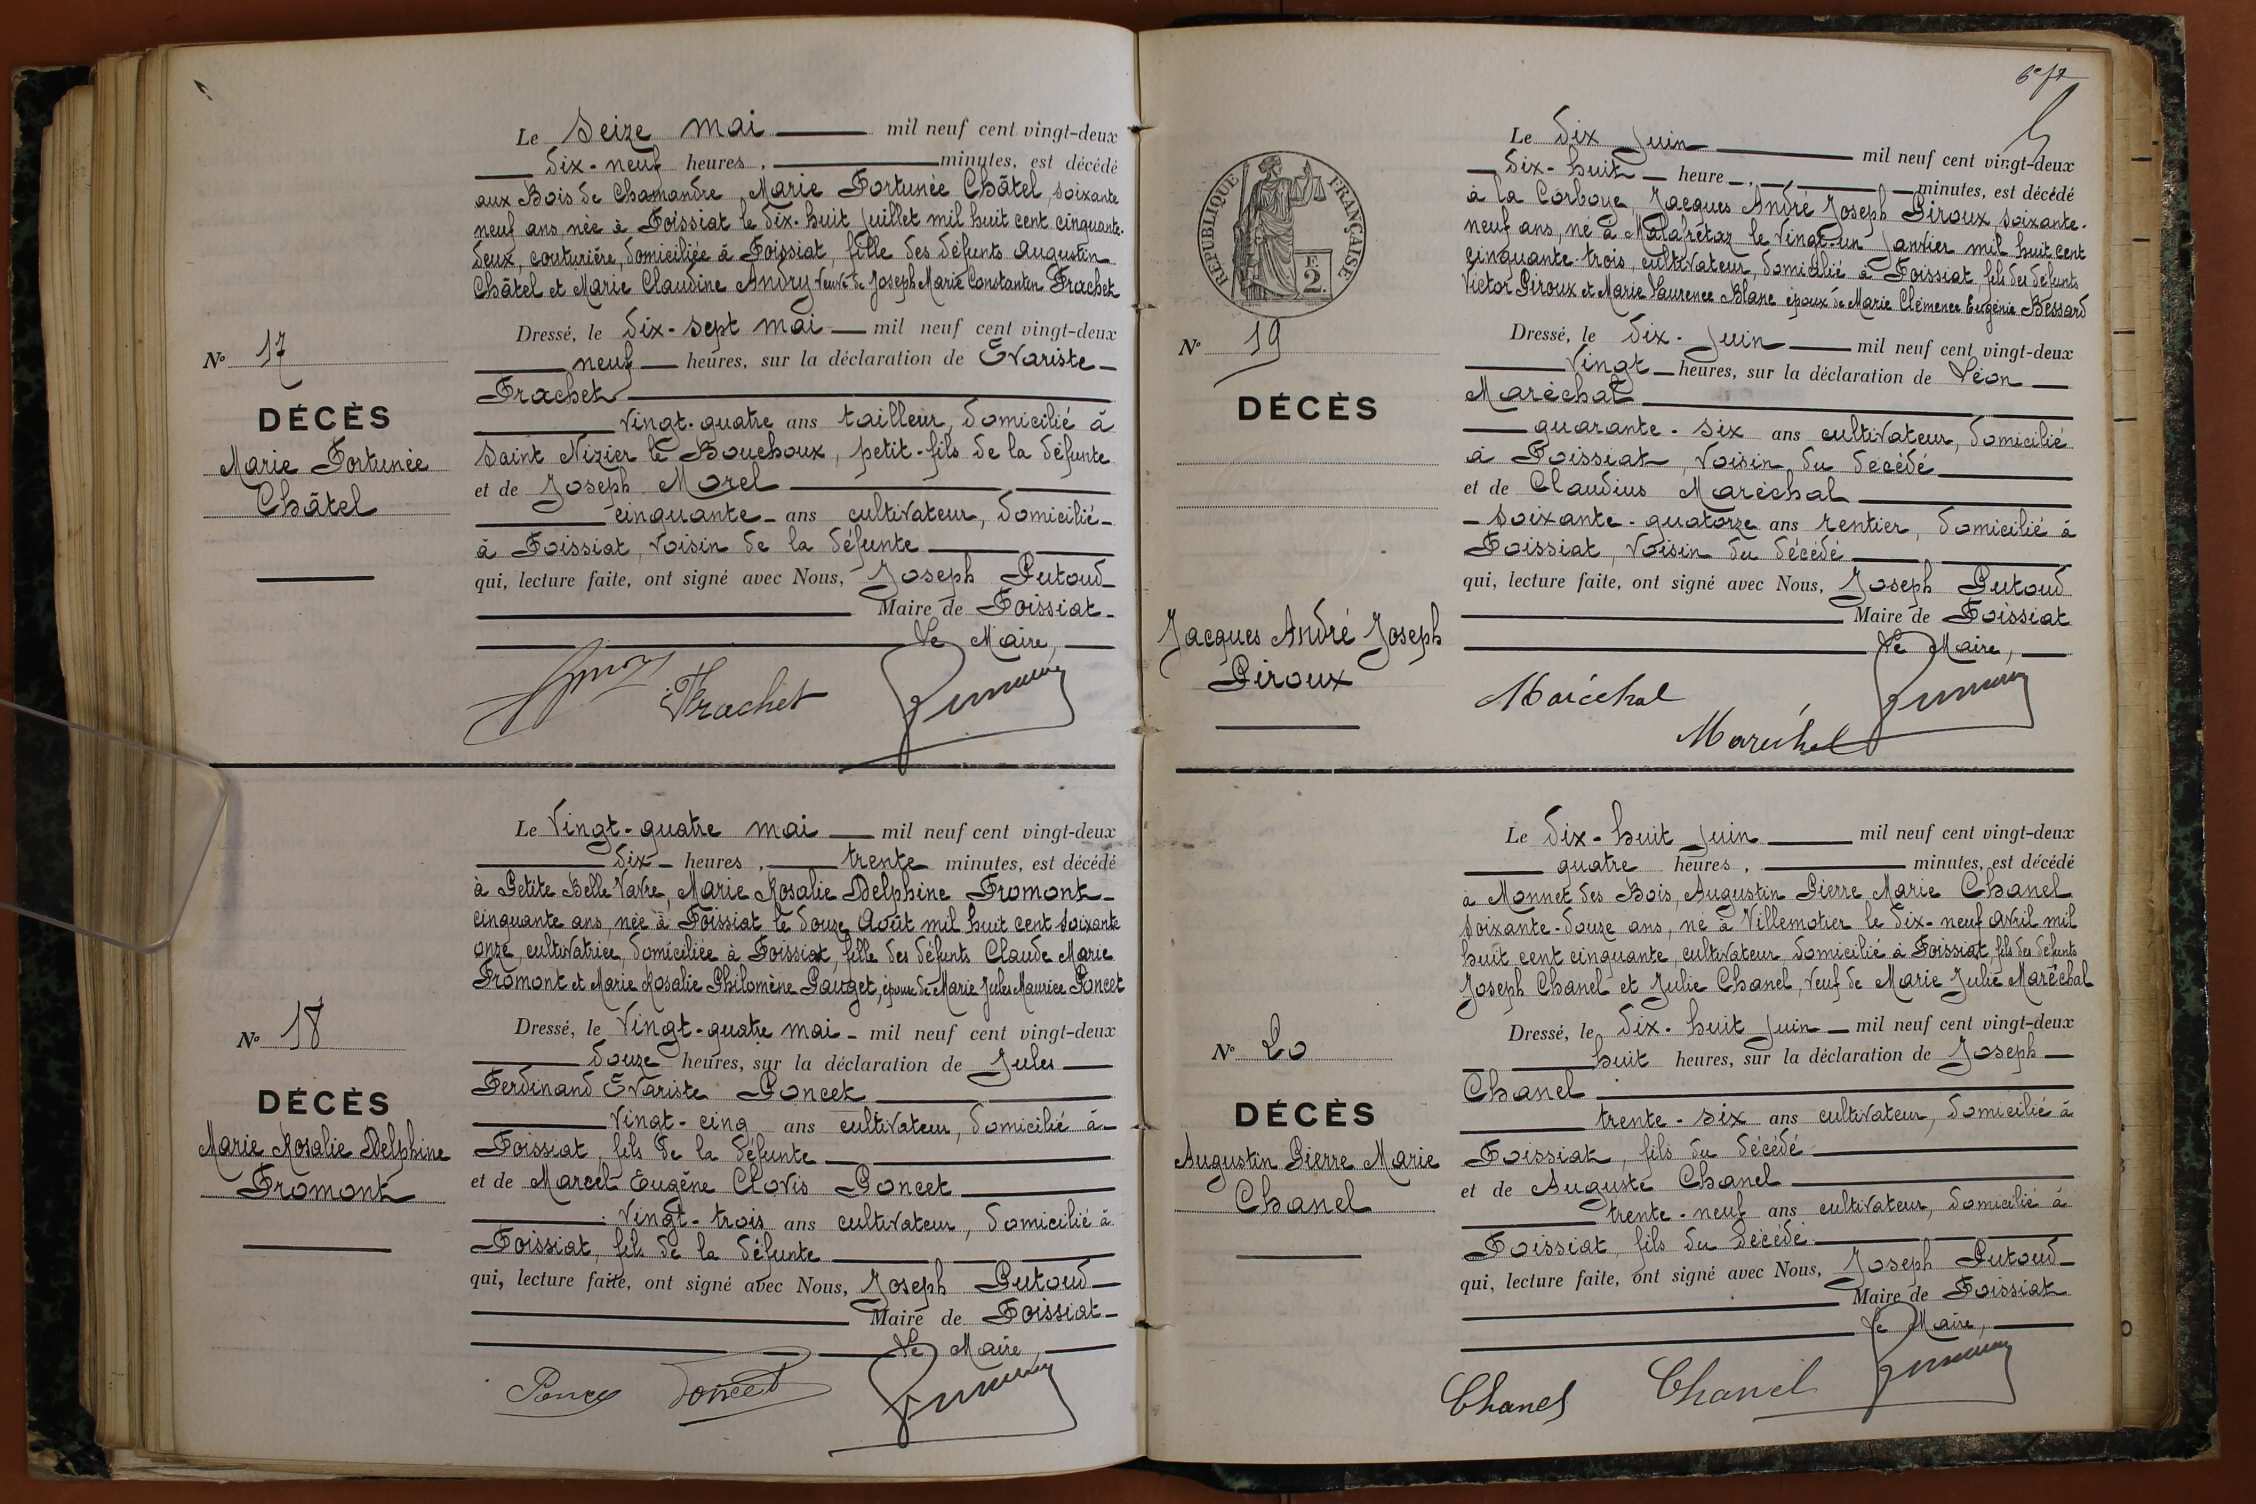 Le Seize mai mil neuf cent vingt-deux
dix-neuf heures, minutes, est décédé
aux Bois de Chamandre Marie Fortunée Châtel, soixante
neuf ans, née à Foissiat le dix-huit Juillet mil huit cent cinquante-
deux, couturière, domiciliée à Foissiat, fille des défunts Augustin
Châtel et Marie Claudine Andry veuve de Joseph Marie Constantin Frachet
Dressé, le dix-sept mai mil neuf cent vingt-deux
neuf heures, sur la déclaration de Evariste
Frachet
vingt-quatre ans tailleur, domicilié à
Saint Nizier le Bouchoux, petit-fils de la défunte
et de Joseph Morel
cinquante ans cultivateur, domicilié
à Foissiat, voisin de la défunte
qui, lecture faite, ont signé avec Nous, Joseph Putoud
Maire de Foissiat
Le Maire,
Frachet
N° 17
DÉCÈS
Marie Fortunée
Châtel
Le Vingt-quatre mai mil neuf cent vingt-deux
dix heures, trente minutes, est décédé
à Petite Belle Vavre, Marie Rosalie Delphine Fromont
cinquante ans, née à Foissiat le douze Août mil huit cent soixante
onze, cultivatrice, domiciliée à Foissiat, fille des défunts Claude Marie
Fromont et Marie Rosalie Philomène Pauget, épouse de Marie Jules Maurice Poncet
Dressé, le Vingt-quatre mai mil neuf cent vingt-deux
douze heures, sur la déclaration de Jules
Ferdinand Evariste Poncet
Vingt-cinq ans cultivateur, domicilié à
Foissiat, fils de la défunte
et de Marcel Eugène Clovis Poncet
Vingt-trois ans cultivateur, domicilié à
Foissiat, fils de la défunte
qui, lecture faite, ont signé avec Nous, Joseph Putoud
Maire de Foissiat
Le Maire,
Poncet Poncet
N° 18
DÉCÈS
Marie Rosalie Delphine
Fromont
RÉPUBLIQUE FRANÇAISE
2
F.
Le dix Juin mil neuf cent vingt-deux
dix-huit heure, minutes, est décédé
à la Corboye Jacques André Joseph Piroux, soixante-
neuf ans, né à Malafretaz le vingt-un Janvier mil huit cent
cinquante-trois, cultivateur, domicilié à Foissiat, fils des défunts
Victor Piroux et Marie Laurence Blanc époux de Marie Clémence Eugénie Bessard
Dressé, le dix-Juin mil neuf cent vingt-deux
Vingt heures, sur la déclaration de Léon
Maréchal
quarante-six ans cultivateur, domicilié
à Foissiat, voisin du décédé
et de Claudius Maréchal
soixante-quatorze ans rentier, domicilié à
Foissiat, voisin du décédé
qui, lecture faite, ont signé avec Nous, Joseph Putoud
Maire de Foissiat
Le Maire,
Maréchal
Maréchal
N° 19
DÉCÈS
Jacques André Joseph
Piroux
Le dix-huit Juin mil neuf cent vingt-deux
quatre heures, minutes, est décédé
à Monnet des Bois, Augustin Pierre Marie Chanel
soixante-douze ans, né à Villemotier le dix-neuf avril mil
huit cent cinquante, cultivateur domicilié à Foissiat, fils des défunts
Joseph Chanel et Julie Chanel, veuf de Marie Julie Maréchal
Dressé, le dix-huit Juin mil neuf cent vingt-deux
huit heures, sur la déclaration de Joseph
Chanel
trente-six ans cultivateur, domicilié à
Foissiat, fils du décédé
et de Auguste Chanel
trente-neuf ans cultivateur, domicilié à
Foissiat, fils du décédé
qui, lecture faite, ont signé avec Nous, Joseph Putoud
Maire de Foissiat
Le Maire,
Chanel Chanel
N° 20
DÉCÈS
Augustin Pierre Marie
Chanel